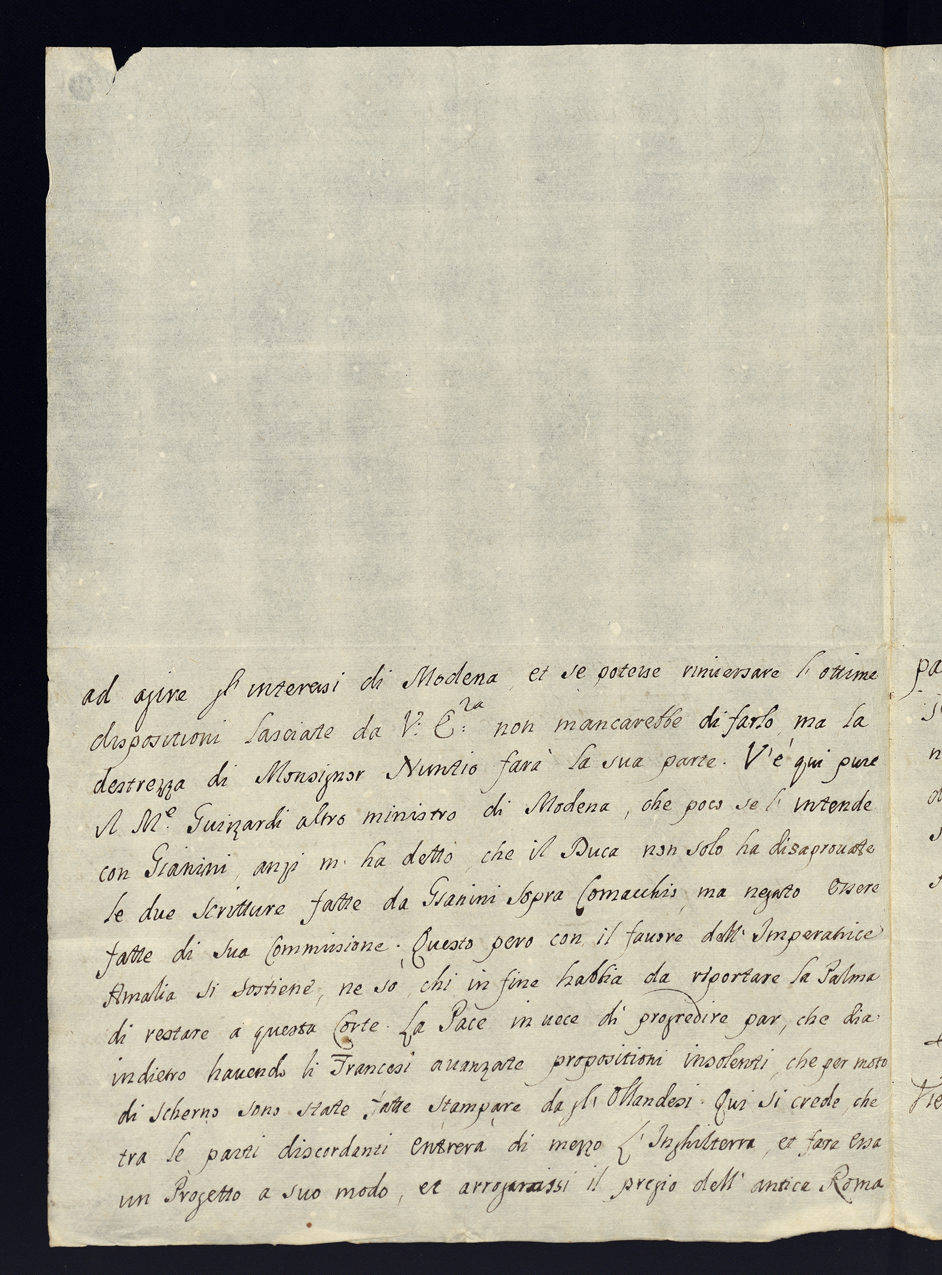 ad agire gl'interessi di Modena, et se potesse riniersare l'ottime
dispositioni lasciate da V. E.za non mancarebbe di farlo, ma la
destrezza di Monsignor Nuntio farà la sua parte. V'è qui pure
il M.e Guizzardi altro ministro di Modena, che poco se l'intende
con Gianini, anzi m'ha detto, che il Duca non solo ha disaprovate
le due scritture fatte da Gianini sopra Comacchio, ma negato essere
fatte di sua Commissione. Questo pero con il favore dell'Imperatrice
Amalia si sostiene, ne so, chi in fine habbia da riportare la Palma
di restare a questa Corte. La Pace in vece di progredire par, che dia
indietro havendo li Francesi avanzate propositioni insolenti, che per moto
di scherno sono state fatte stampare da gli Ollandesi. Qui si crede, che
tra le parti discordanti entrerà di mezzo l'Inghilterra, et fara essa
un Progetto a suo modo, et arrogarassi il pregio dell'antica Roma
pa
n